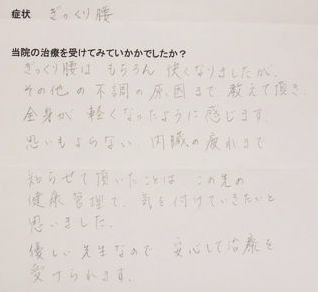 症状 ぎっくり腰
当院の治療を受けてみていかがでしたか？
ぎっくり腰は もちろん 快くなりましたが、
その他の 不調の 原因まで 教えて頂き、
全身が 軽くなったように 感じます。
思いもよらない 内臓の 疲れまで
知らせて 頂いたことは この先の
健康管理で、気を付けていきたいと
思いました。
優しい先生なので 安心して治療を
受けられます。